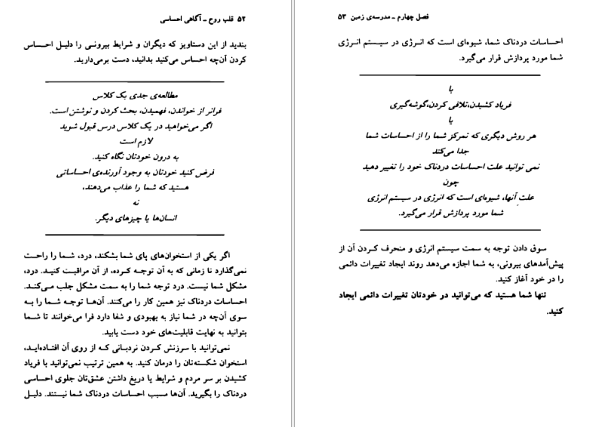 ۵۲ قلب روح ـ آگاهی احساسی
بندید از این دستاویز که دیگران و شرایط بیرونی را دلیل احساس
کردن آن‌چه احساس می‌کنید بدانید، دست برمی‌دارید.
مطالعه‌ی جدی یک کلاس
فراتر از خواندن، فهمیدن، بحث کردن و نوشتن است.
اگر می‌خواهید در یک کلاس درس قبول شوید
لازم است
به درون خودتان نگاه کنید.
فرض کنید خودتان به وجود آورنده‌ی احساساتی
هستید که شما را عذاب می‌دهند،
نه
انسان‌ها یا چیزهای دیگر.
اگر یکی از استخوان‌های پای شما بشکند، درد، شما را راحت
نمی‌گذارد تا زمانی که به آن توجه کرده، از آن مراقبت کنید. درد،
مشکل شما نیست. درد توجه شما را به سمت مشکل جلب می‌کند.
احساسات دردناک نیز همین کار را می‌کنند. آن‌ها توجه شما را به
سوی آن‌چه در شما نیاز به بهبودی و شفا دارد فرا می‌خوانند تا شما
بتوانید به نهایت قابلیت‌های خود دست یابید.
نمی‌توانید با سرزنش کردن نردبانی که از روی آن افتاده‌اید،
استخوان شکسته‌تان را درمان کنید. به همین ترتیب نمی‌توانید با فریاد
کشیدن بر سر مردم و شرایط یا دریغ داشتن عشق‌تان جلوی احساسی
دردناک را بگیرید. آن‌ها مسبب احساسات دردناک شما نیستند. دلیل
فصل چهارم ـ مدرسه‌ی زمین ۵۳
احساسات دردناک شما، شیوه‌ای است که انرژی در سیستم انرژی
شما مورد پردازش قرار می‌گیرد.
با
فریاد کشیدن،تلافی کردن،گوشه‌گیری
یا
هر روش دیگری که تمرکز شما را از احساسات شما
جدا می‌کند
نمی توانید علت احساسات دردناک خود را تغییر دهید
چون
علت آنها، شیوه‌ای است که انرژی در سیستم انرژی
شما مورد پردازش قرار می‌گیرد.
سوق دادن توجه به سمت سیستم انرژی و منحرف کردن آن از
پیش‌آمدهای بیرونی، به شما اجازه می‌دهد روند ایجاد تغییرات دائمی
را در خود آغاز کنید.
تنها شما هستید که می‌توانید در خودتان تغییرات دائمی ایجاد
کنید.